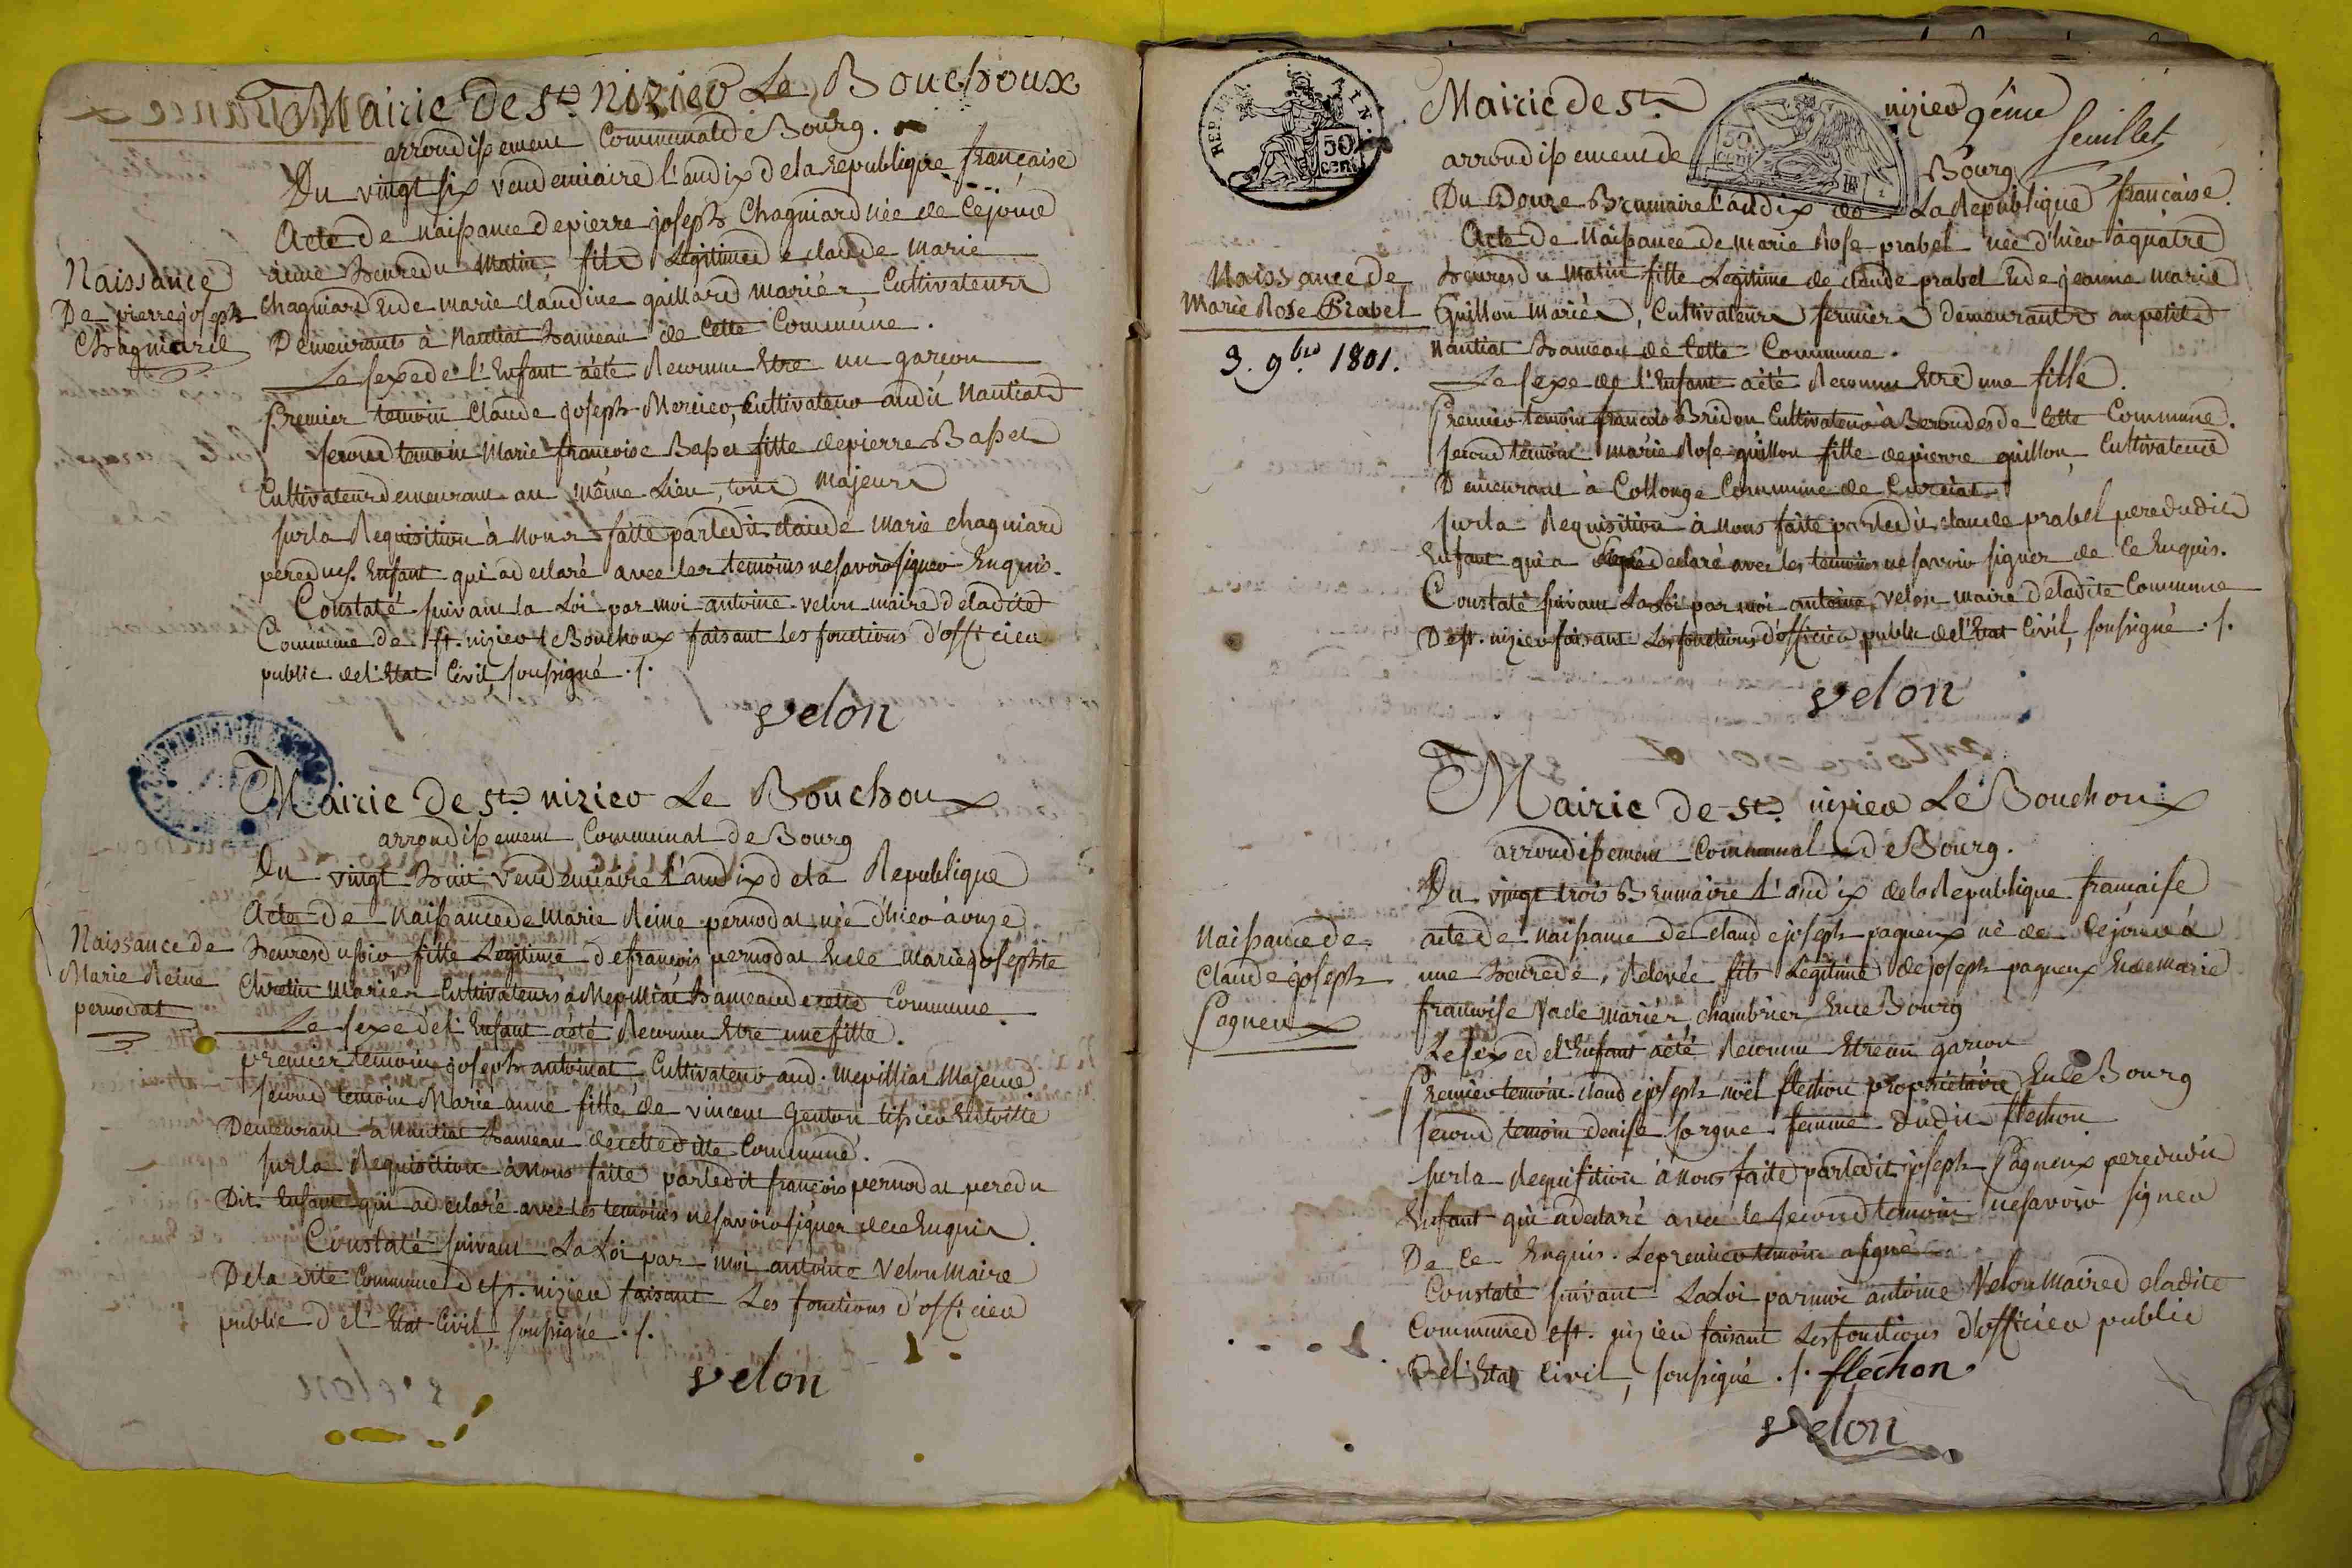 Mairie de st. nizier Le Bouchoux
arrondissement Communal de Bourg.
Du vingt six vendemiaire l'an dix de la republique française
Acte de naissance de pierre joseph Chagniard née de Cejour
à une heure du matin fils Legitime de claude marie
Naissance
De pierre joseph
Chagniard
Chagniard Et de marie claudine gaillard mariés, Cultivateurs
Demeurants à Nantiat hameau de cette Commune.
Le sexe de l'Enfant a été Reconnu Etre un garcon
Premier temoin Claude joseph Mercier, Cultivateur audit Nantiat
second temoin Marie francoise Basset fille de pierre Basset
Cultivateur demeurant au même Lieu, tous Majeurs
sur la Requisition à Nous faitte par ledit claude marie chagniard
pere dud. Enfant qui a declaré avec les temoins ne savoir signer Enquis.
Constaté suivant la Loi par moi antoine velon maire de ladite
Commune de st. nizier le Bouchoux faisant les fonctions d'officier
public de l'Etat Civil soussigné ./.
velon
Mairie de st. nizier Le Bouchoux
arrondissement Communal de Bourg
Du vingt huit vendemiaire l'an dix de la Republique
Acte de Naissance de Marie Reine pernodat née d'hier à onze
Naissance de
Marie Reine
pernodat
heures du soir fille Legitime de françois pernodat Et de Marie josephte
Chretin Mariés Cultivateurs à Mepilliat hameau de cette Commune
Le sexe de l'Enfant a été Reconnu Etre une fille.
premier temoin joseph antoinat Cultivateur aud. Mepilliat Majeur
second temoin Marie anne fille de vincent Genton tissier Entoille
Demeurant à Nantiat hameau de cette ditte Commune.
sur la Requisition à Nous faite par ledit françois pernodat pere du
Dit Enfant qui a declaré avec les temoins ne savoir signer de ce Enquis.
Constaté suivant La Loi par moi antoine Velon Maire
De la dite Commune de st. nizier faisant Les fonctions d'officier
public de l'Etat Civil, soussigné ./.
velon
Mairie de st. nizier 9éme
feuillet
REP. FRA
50 CENT.
50 CENT
arrondissement de Bourg
Du Douze Brumaire l'an dix de La Republique française.
Acte de Naissance de Marie Rose prabel née d'hier à quatre
Naissance de
Marie Rose Prabel
3. 9bre 1801.
heures du Matin fille Legitime de claude prabel Et de jeanne marie
Guillon Mariés, Cultivateurs fermiers demeurants au petit
Nantiat hameau de Cette Commune.
Le sexe de l'Enfant a été Reconnu Etre une fille.
Premier temoin francois Bridon Cultivateur à Beroudes de Cette Commune.
second temoin marie Rose guillon fille de pierre guillon, Cultivateur
Demeurant à Collonge Commune de Curciat.
sur la Requisition à Nous faite par ledit claude prabel pere dudit
Enfant qui a declaré avec les temoins ne savoir signer de Ce Enquis.
Constaté suivant La Loi par moi antoine Velon maire de ladite Commune
De st. nizier faisant Les fonctions d'officier public de l'Etat Civil, soussigné ./.
velon
Mairie de st. nizier Le Bouchoux
arrondissement Communal de Bourg.
Du vingt trois Brumaire l'an dix de la Republique françaife
Naissance de
Claude joseph
Pagneux
acte de naissance de claude joseph pagneux né de Cejour à
une heure de Relevée fils Legitime de joseph pagneux Et de Marie
francoise Vade mariés chambrier En ce Bourg
Le sexe de l'Enfant a été Reconnu Etre un garcon
Premier temoin claude joseph noël flechon propriétaire En ce Bourg
second temoin denise sorgue femme dudit flechon
sur la Requisition à Nous faite par ledit joseph Pagneux pere dudit
Enfant qui a declaré avec le second temoin ne savoir signer
De Ce Enquis. Le premier temoin a signé
Constaté suivant La Loi par moi antoine Velon Maire de ladite
Commune de st. nizier faisant Les fonctions d'officier public
de l'Etat Civil, soussigné ./. flechon.
velon